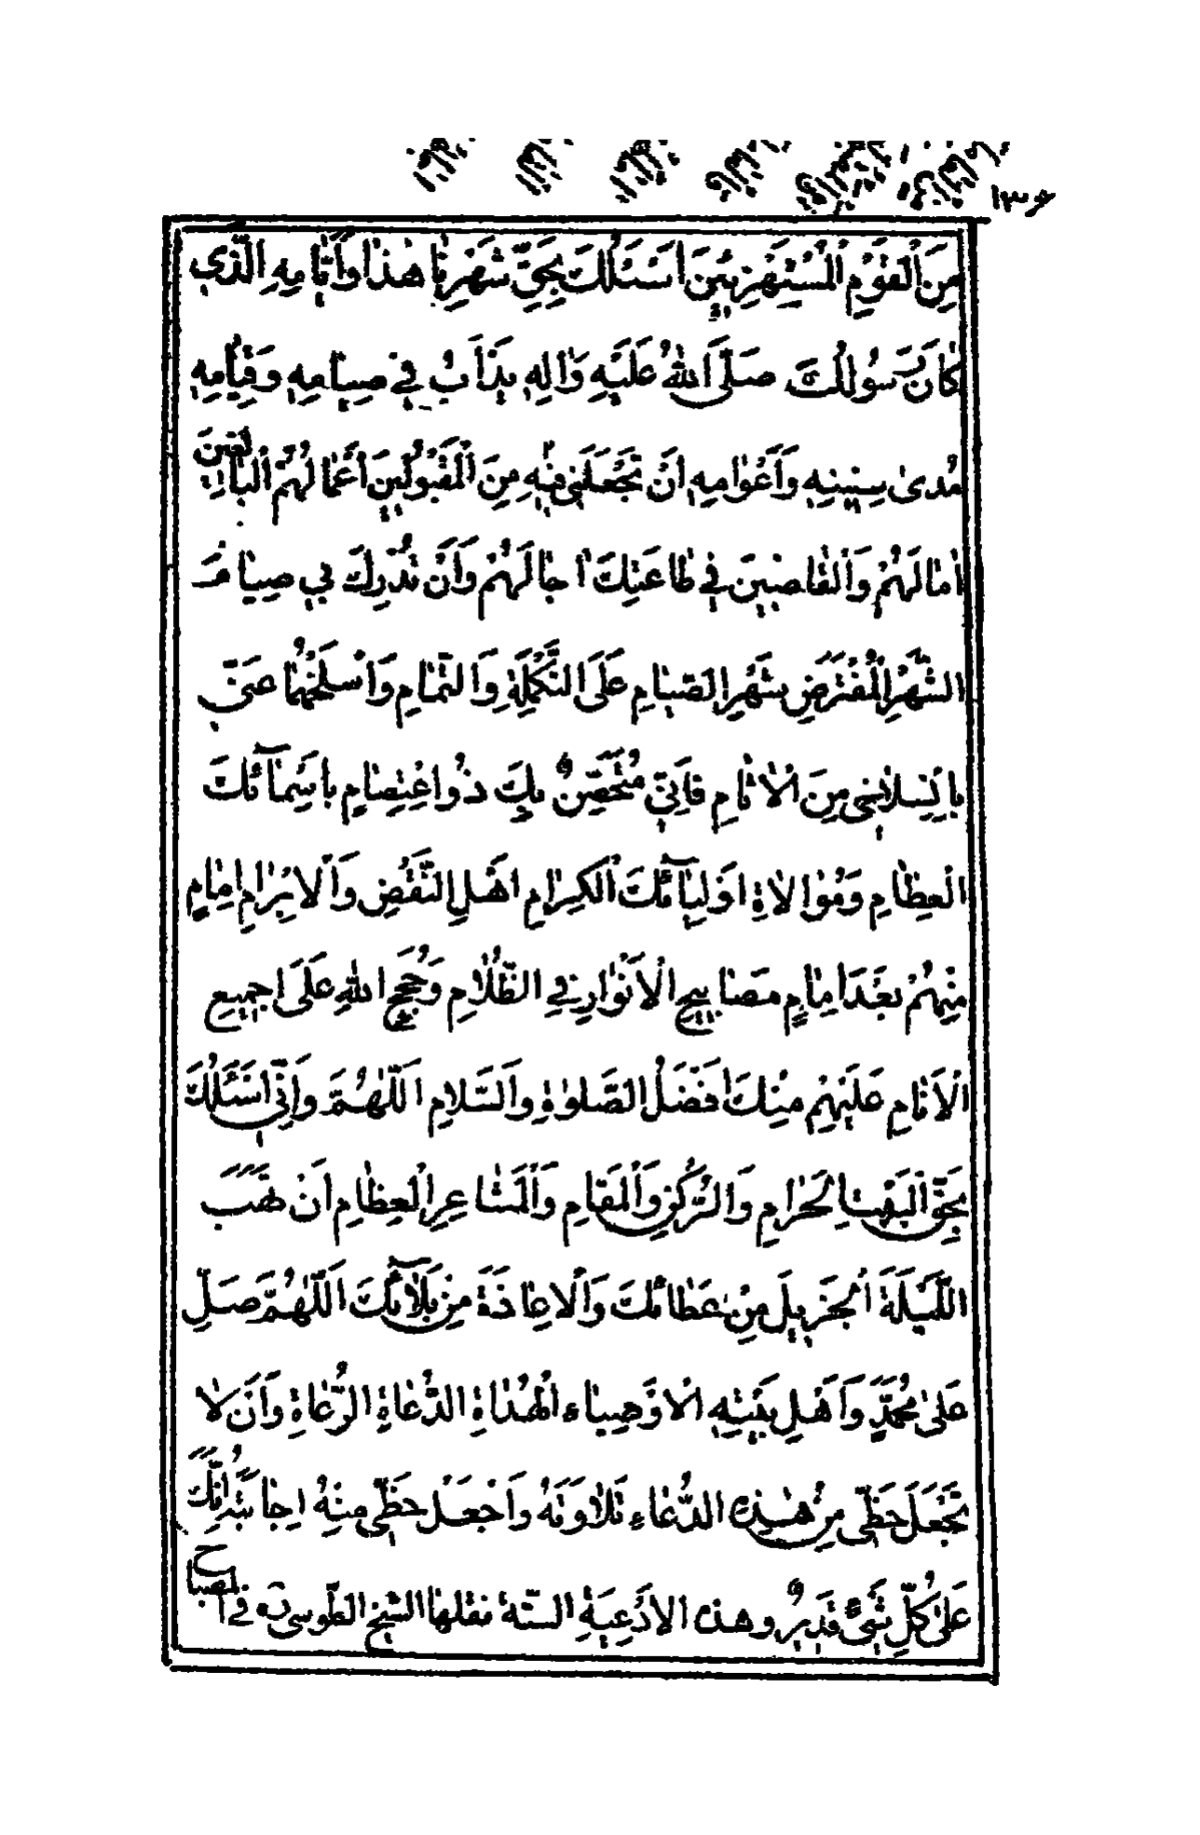 ۱۳۶
مِنَ الْقَوْمِ الْمُسْتَهْزِئِينَ اَسْئَلُكَ بِحَقِّ شَهْرِنٰا هٰذٰا وَاَيّٰامِهِ الَّذِي
كٰانَ رَسُولُكَ صَلَّى اَللهُ عَلَيْهِ وَاٰلِهِ يَدْاَبُ فِي صِيٰامِهِ وَقِيٰامِهِ
مُدىٰ سِنِينِهِ وَاَعْوٰامِهِ اَنْ تَجْعَلَنِي فِيهِ مِنَ الْمَقْبُولِينَ اَعْمٰالُهُمْ اَلْبٰالِغِينَ
اٰمٰالَهُمْ وَالْقٰاضِينَ فِي طٰاعَتِكَ اٰجٰالَهُمْ وَاَنْ تُدْرِكَ بِي صِيٰامَ
الشَّهْرِ الْمُفْتَرَضِ شَهْرِ الصِّيٰامِ عَلَى التَّكْمِلَةِ وَالتَّمٰامِ وَاَسْلَخَهُمٰا عَنِّي
بِانْسِلاٰخِي مِنَ الْاٰثٰامِ فَاِنِّي مُتَحَصِّنٌ بِكَ ذُو اعْتِصٰامٍ بِاَسْمٰآئِكَ
الْعِظٰامِ وَمُوٰالاٰةِ اَوْلِيٰآئِكَ الْكِرٰامِ اَهْلِ النَّقْضِ وَالْاِبْرٰامِ اِمٰامٍ
مِنْهُمْ بَعْدَ اِمٰامٍ مَصٰابِيحِ الْاَنْوٰارِ فِي الظَّلاٰمِ وَحُجَجِ اللهِ عَلَى اجَمِيعِ
الْاَنٰامِ عَلَيْهِمْ مِنْكَ اَفْضَلُ الصَّلوٰةِ وَالسَّلاٰمِ اَللّٰهُمَّ وَاِنِّي اَسْئَلُكَ
بِحَقِّ الْبَيْتِ الْحَرٰامِ وَالرُّكْنِ وَالْمَقٰامِ وَالْمَشٰاعِرِ الْعِظٰامِ اَنْ تَهَبَ
اللَّيْلَةَ الْجَزِيلَ مِنْ عَطٰائِكَ وَالْاِعٰاذَةَ مِنْ بَلآٰئِكَ اَللّٰهُمَّ صَلِّ
عَلىٰ مُحَمَّدٍ وَاَهْلِ بَيْتِهِ الْاَوْصِيٰاءِ الْهُدٰاةِ الدُّعٰاةِ الرُّعٰاةِ وَاَنْ لاٰ
تَجْعَلَ حَظِّي مِنْ هٰذَا الدُّعٰاءِ تِلاٰوَتَهُ وَاجْعَلْ حَظِّي مِنْهُ اِجٰابَتَهُ اِنَّكَ
عَلىٰ كُلِّ شَيْءٍ قَدِيرٌ وهذه الادْعِيَةُ الستة نقلها الشيخ الطوسى ره في المصباح